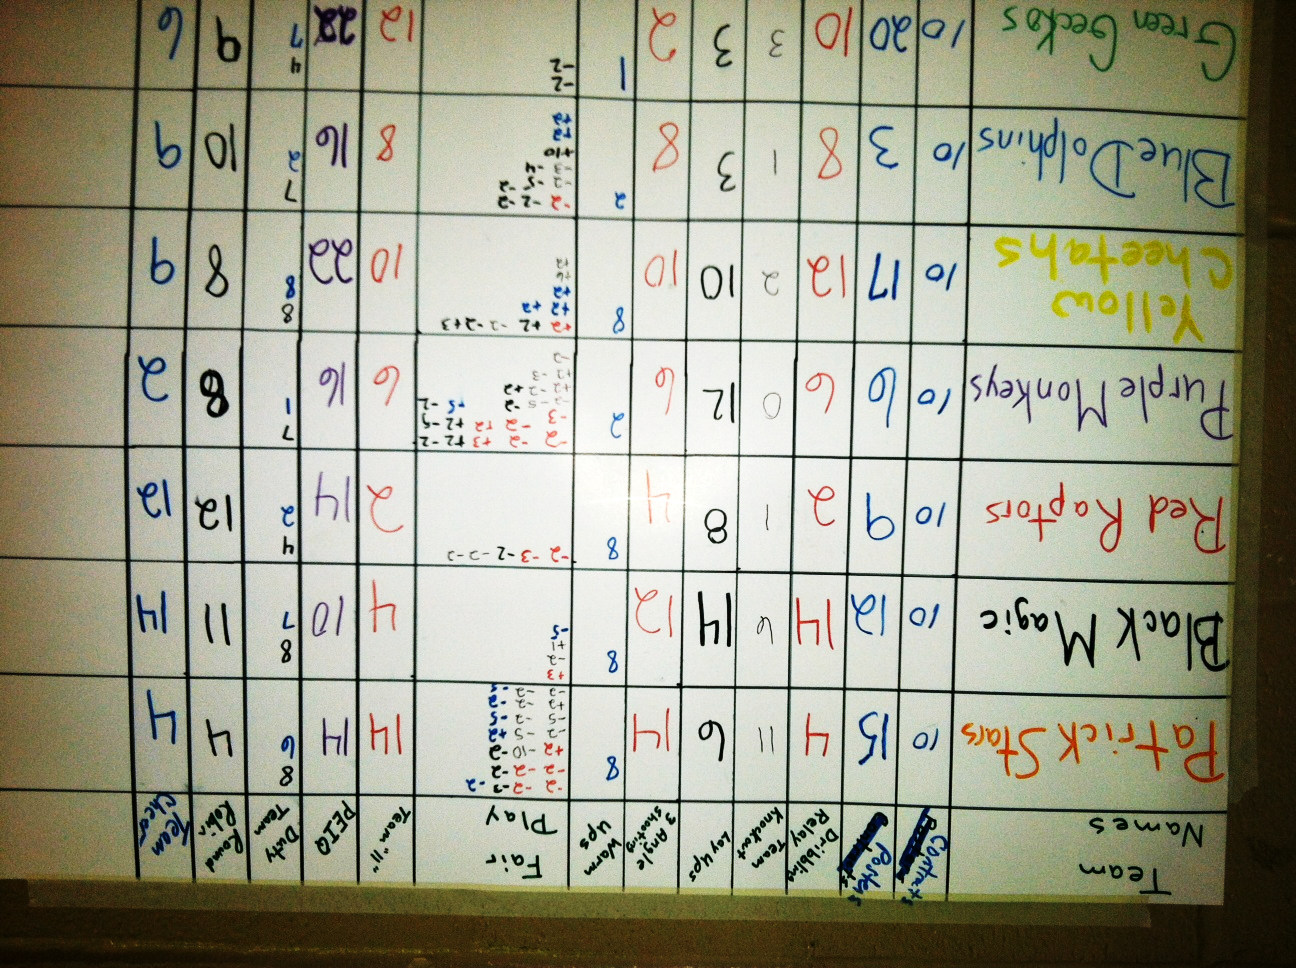 Team Names Contracts Posters Dribbling Relay Team Knockout Lay Ups 3 Angle Shooting Warm Ups Fair Play Team "11" PEIQ Duty Team Round Robin Team Cheer
Patrick Stars 10 15 4 11 6 14 8 14 14 8 6 4 4
Black Magic 10 12 14 6 14 12 8 +3 -2 +1 -5 4 10 8 7 11 14
Red Raptors 10 9 2 1 8 4 8 -2 -3 -2 -2 -2 2 14 4 2 12 12
Purple Monkeys 10 6 6 0 12 6 2 6 16 7 1 8 2
Yellow Cheetahs 10 17 12 2 10 10 8 +2 +2 -2 -2 +3 +2 +2 +2 +6 +2 10 22 8 8 8 9
Blue Dolphins 10 3 8 1 3 8 2 -2 -2 -2 -2 -5 -2 -3 -4 +10 +2 +2 8 16 7 2 10 9
Green Geckos 10 20 10 3 3 2 1 -2 -2 12 22 4 7 9 6